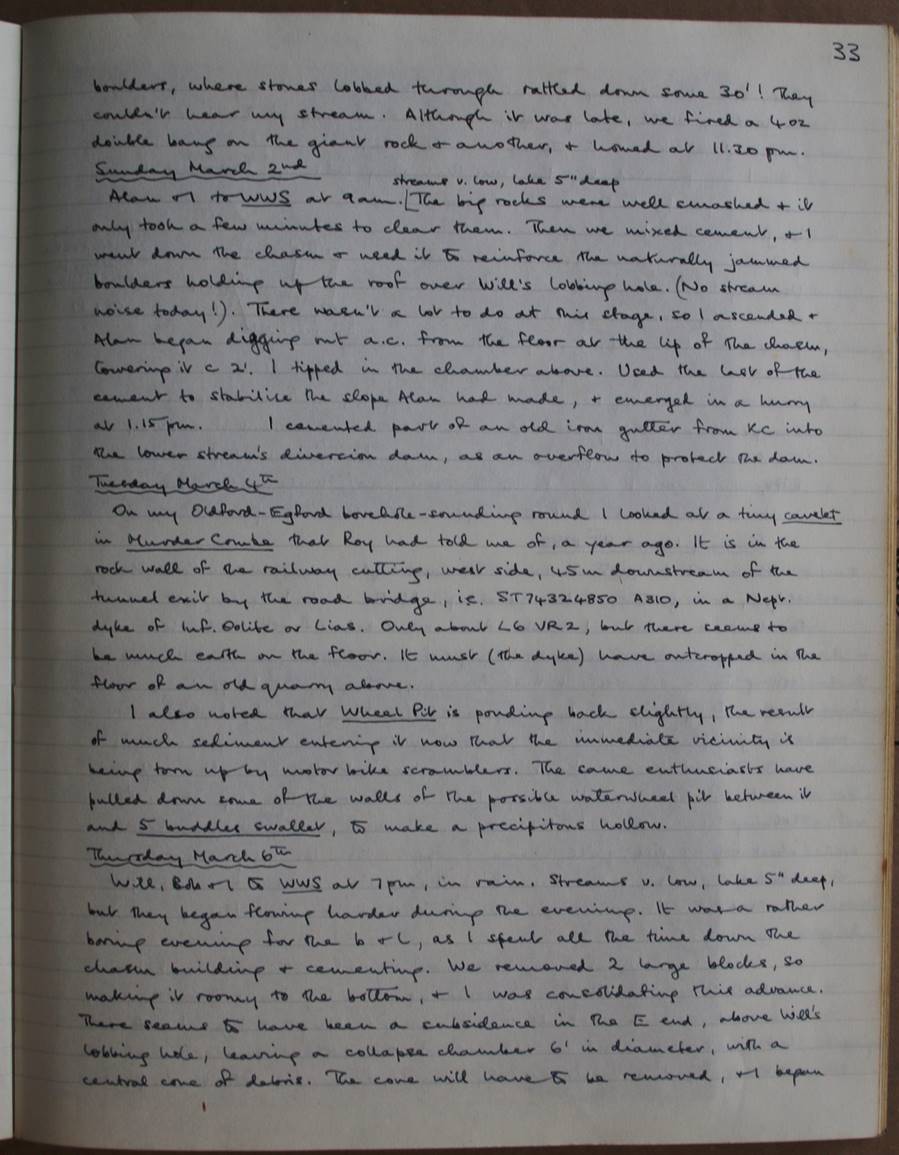 33
boulders, where stones lobbed through rattled down some 30'! They
couldn't hear my stream. Although it was late, we fired a 4oz
double bang on the giant rock & another, & homed at 11.30 pm.
Sunday March 2nd
streams v. low, lake 5" deep
Alan & I to WWS at 9am. [The big rocks were well smashed & it
only took a few minutes to clear them. Then we mixed cement, & I
went down the chasm & used it to reinforce the naturally jammed
boulders holding up the roof over Will's lobbing hole. (No stream
noise today!). There wasn't a lot to do at this stage, so I ascended &
Alan began digging out a.c. from the floor at the lip of the chasm,
lowering it c 2'. I tipped in the chamber above. Used the last of the
cement to stabilise the slope Alan had made, & emerged in a hurry
at 1.15 pm. I cemented part of an old iron gutter from KC into
the lower stream's diversion dam, as an overflow to protect the dam.
Tuesday March 4th
On my Oldford-Egford borehole-sounding round I looked at a tiny cavelet
in Murder Combe that Roy had told me of, a year ago. It is in the
rock wall of the railway cutting, west side, 45m downstream of the
tunnel exit by the road bridge, ie. ST74324850 A310, in a Nept.
dyke of Inf. Oolite or Lias. Only about L6 VR2, but there seems to
be much earth on the floor. It must (the dyke) have outcropped in the
floor of an old quarry above.
I also noted that Wheel Pit is ponding back slightly, the result
of much sediment entering it now that the immediate vicinity is
being torn up by motor bike scramblers. The same enthusiasts have
pulled down some of the walls of the possible waterwheel pit between it
and 5 buddles swallet, to make a precipitous hollow.
Thursday March 6th
Will, Bob & I to WWS at 7pm, in rain. Streams v. low, lake 5" deep,
but they began flowing harder during the evening. It was a rather
boring evening for the b & l, as I spent all the time down the
chasm building & cementing. We removed 2 large blocks, so
making it roomy to the bottom, & I was consolidating this advance.
There seems to have been a subsidence in the E end, above Will's
lobbing hole, leaving a collapse chamber 6' in diameter, with a
central cone of debris. The cone will have to be removed, & I began